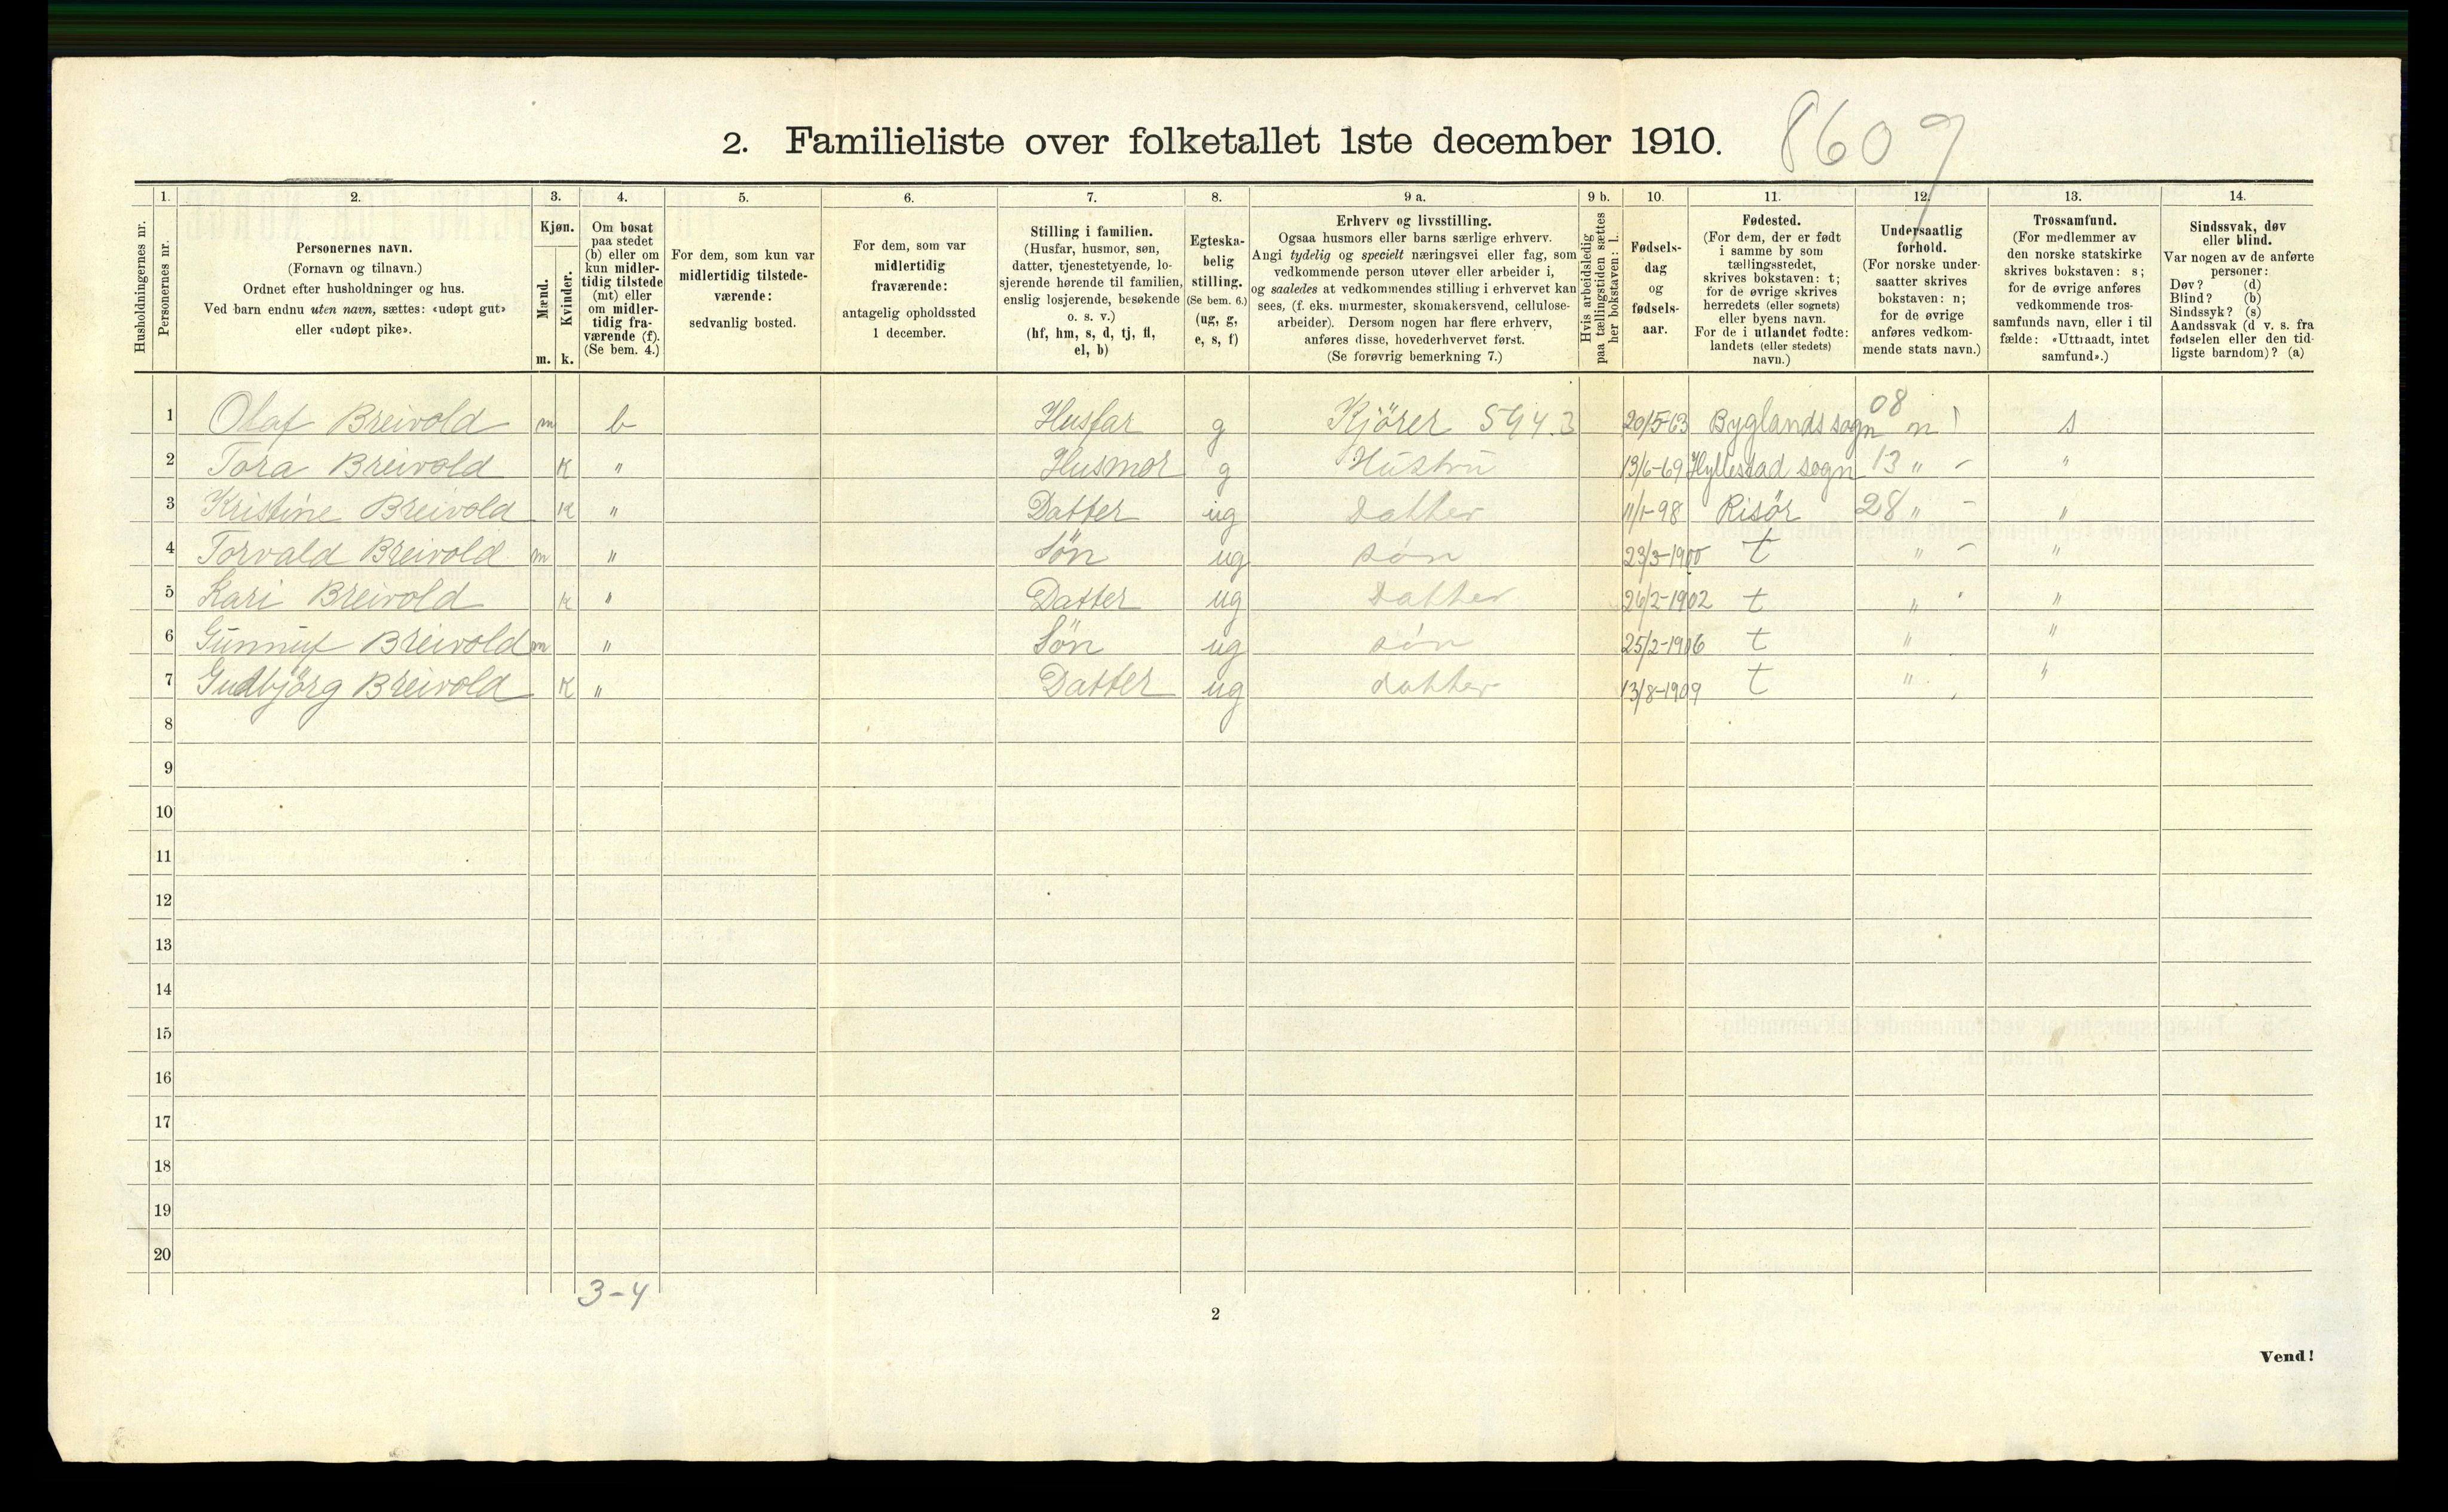 2. Familieliste over folketallet 1ste december 1910.
8609
Husholdningernes nr.
1. Personernes nr.
2.
Personernes navn.
(Fornavn og tilnavn.)
Ordnet efter husholdninger og hus.
Ved barn endnu uten navn, sættes: «udøpt gut»
eller «udøpt pike».
3.
Kjøn.
Mænd.
Kvinder.
m. k.
4.
Om bosat
paa stedet
(b) eller om
kun midler-
tidig tilstede
(mt) eller
om midler-
tidig fra-
værende (f).
(Se bem. 4.)
5.
For dem, som kun var
midlertidig tilstede-
værende:
sedvanlig bosted.
6.
For dem, som var
midlertidig
fraværende:
antagelig opholdssted
1 december.
7.
Stilling i familien.
(Husfar, husmor, søn,
datter, tjenestetyende, lo-
sjerende hørende til familien,
enslig losjerende, besøkende
o. s. v.)
(hf, hm, s, d, tj, fl,
el, b)
8.
Egteska-
belig
stilling.
(Se bem. 6.)
(ug, g,
e, s, f)
9 a.
Erhverv og livsstilling.
Ogsaa husmors eller barns særlige erhverv.
Angi tydelig og specielt næringsvei eller fag, som
vedkommende person utøver eller arbeider i,
og saaledes at vedkommendes stilling i erhvervet kan
sees, (f. eks. murmester, skomakersvend, cellulose-
arbeider). Dersom nogen har flere erhverv,
anføres disse, hovederhvervet først.
(Se forøvrig bemerkning 7.)
9 b.
Hvis arbeidsledig
paa tællingstiden sættes
her bokstaven: l.
10.
Fødsels-
dag
og
fødsels-
aar.
11.
Fødested.
(For dem, der er født
i samme by som
tællingsstedet,
skrives bokstaven: t;
for de øvrige skrives
herredets (eller sognets)
eller byens navn.
For de i utlandet fødte:
landets (eller stedets)
navn.)
12.
Undersaatlig
forhold.
(For norske under-
saatter skrives
bokstaven: n;
for de øvrige
anføres vedkom-
mende stats navn.)
13.
Trossamfund.
(For medlemmer av
den norske statskirke
skrives bokstaven: s;
for de øvrige anføres
vedkommende tros-
samfunds navn, eller i til
fælde: «Uttraadt, intet
samfund».)
14.
Sindssvak, døv
eller blind.
Var nogen av de anførte
personer:
Døv? (d)
Blind? (b)
Sindssyk? (s)
Aandssvak (d v. s. fra
fødselen eller den tid-
ligste barndom)? (a)
1 Olaf Breivold m b Husfar g Kjörer 594.3 20/5-63 Byglands sogn 08 n s
2 Tora Breivold K " Husmor g Hustru 13/6-69 Hyllestad sogn 13 " - "
3 Kristine Breivold K " Datter ug Datter 11/1-98 Risör 28 " - "
4 Torvald Breivold m " Sön ug Søn 23/3-1900 t " - "
5 Kari Breivold K " Datter ug Datter 26/2-1902 t " "
6 Gunnuf Breivold m " Sön ug Søn 25/2-1906 t " "
7 Gudbjörg Breivold K " Datter ug datter 13/8-1909 t " "
8
9
10
11
12
13
14
15
16
17
18
19
20
3-4
2
Vend!